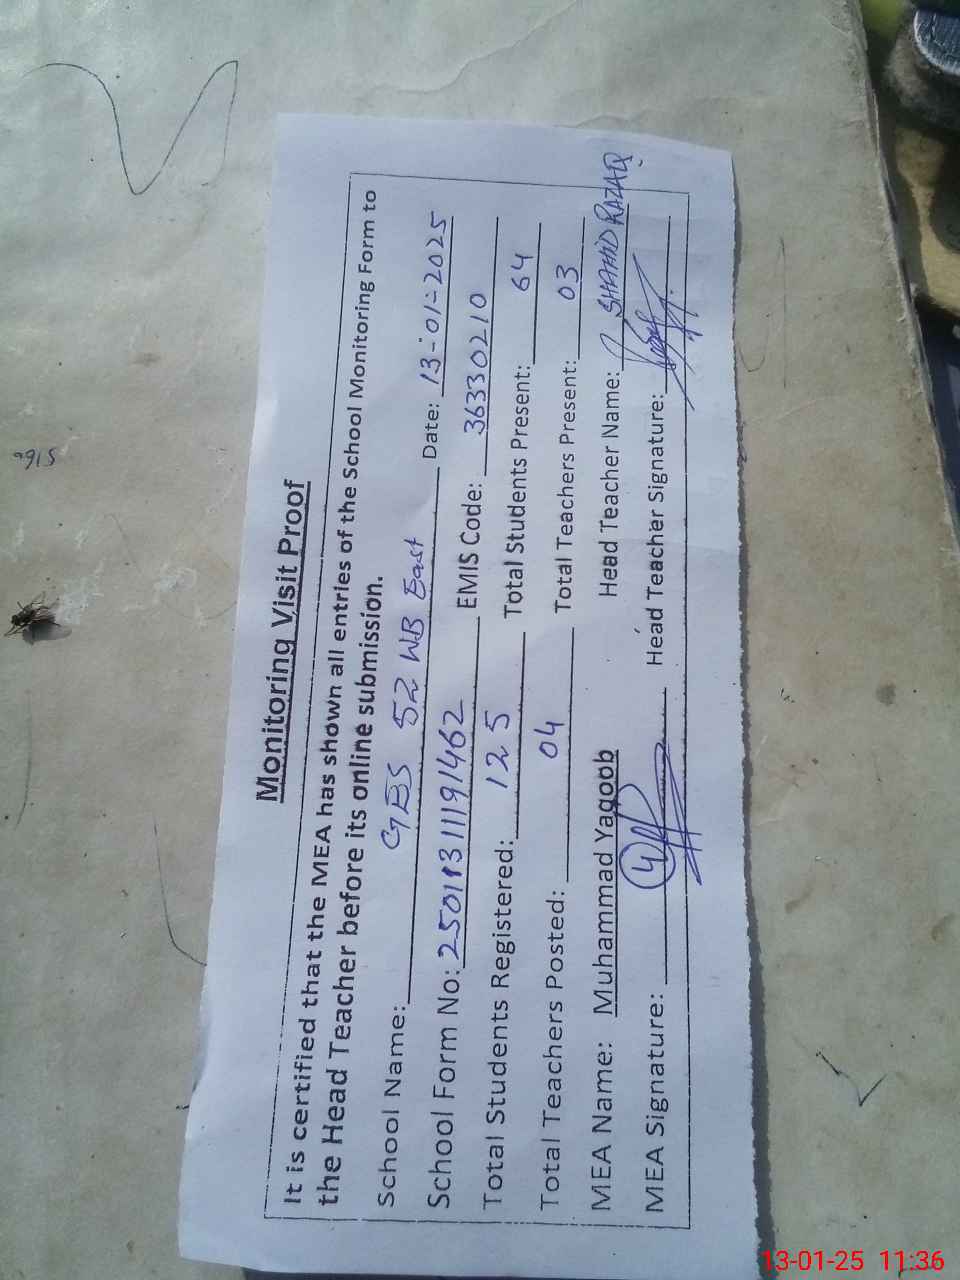 Monitoring Visit Proof
It is certified that the MEA has shown all entries of the School Monitoring Form to
the Head Teacher before its online submission.
School Name: GBS 52 WB East Date: 13-01-2025
School Form No: 250113111191462 EMIS Code: 36330210
Total Students Registered: 125 Total Students Present: 64
Total Teachers Posted: 04 Total Teachers Present: 03
MEA Name: Muhammad Yaqoob Head Teacher Name: SHAHID RAZAQ
MEA Signature: Head Teacher Signature:
13-01-25 11:36